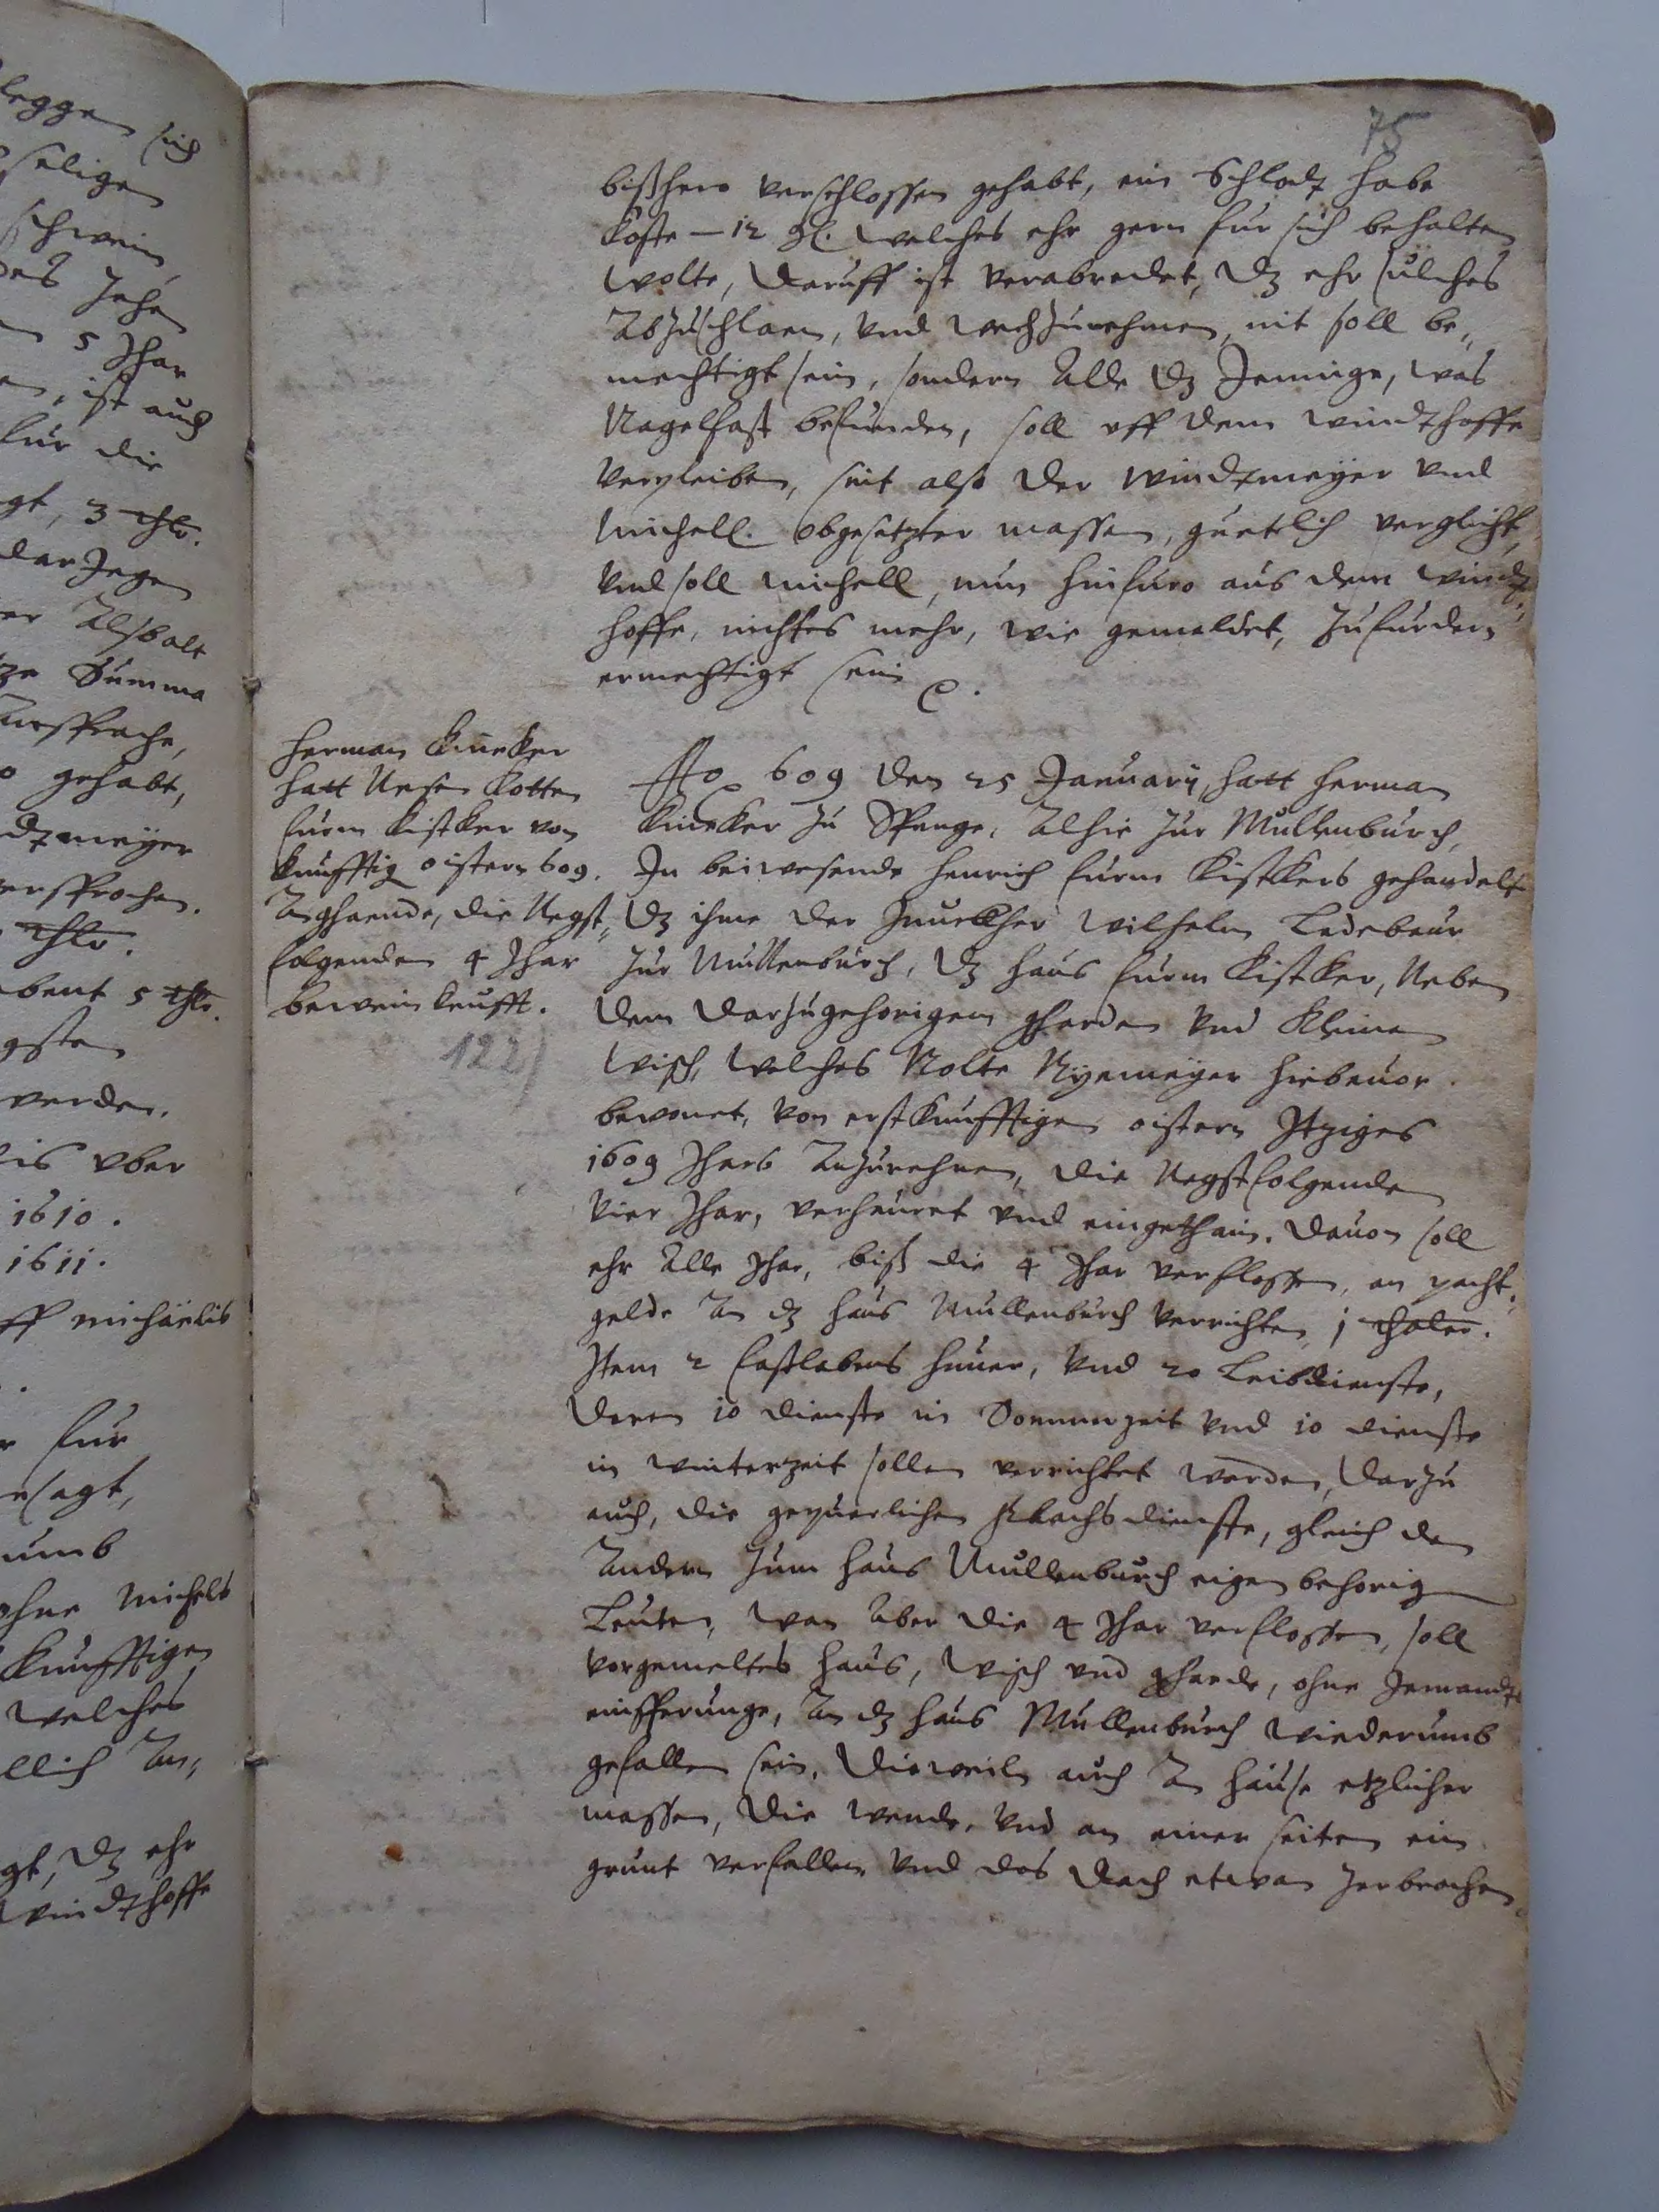 75
bißhero verschlossen gehabt, ein Schlodt habe
koste – 12 gl. welches ehr gern fur sich behalten
wolte, daruff ist verabredet, dz ehr sulches
Abzuschlaen, vnd wechzunehmen, nit soll be„
mechtigt sein, sondern Alle dz Jennige, was
Nagelfast befunden, soll vff dem windthoffe
verpleiben, seit also der windtmeÿer vnd
Michell. obgesetzter massen, guetlich verglichen,
vnd soll michell, nun hinfuro aus dem windt„
hoffe, nichtes mehr, wie gemeldet, zufurdern
ermechtigt sein
Herman Kineker
hatt Unsen Kotten
furm Kistker von
kunfftig oistern 609.
Anghaende, die Negst„
folgenden 4 Jhar
beweinkaufft.
122
Ao 609 den 25 Januarÿ, hatt Herman
Kineker zu Spenge, Alhie zur Mullenburch,
In beiwesende Henrich furm Kistkers gehandelt
dz ihme der Juncker Wilhelm Ledebuer
zur Mullenburch, dz haus furm Kistker, Neben
dem darzugehorigem gharden vnd kleinen
wisch, welches Nolte Nÿemeÿer hiebeuor
bewonet, von erstkunfftigen oistern Jtziges
1609 Jhars Anzurehnen, die Negstfolgenden
vier Jhar, verheuret vnd eingethain. dauon soll
ehr Alle Jhar, biß die 4 Jhar verflossen, an pacht„
gelde An dz haus Mullenburch verrichten 1 thaler.
Jtem 2 fastlabens huner, vnd 20 Leibdienste,
deren 10 dienste in Sommerzeit vnd 10 dienste
in winterzeit sollen verrichtet werden, darzu
auch, die gepuerlichen flachs dienste, gleich den
Andern zum haus Mullenburch eigenbehorigen
Leuten, wan Aber die 4 Jhar verflossen, soll
vorgemeltes haus, wisch vnd gharde, ohne Jemandts
einsperunge, An dz haus Mullenburch wiederumb
gefallen sein, dieweiln auch Am hause etzlicher
massen, die wende, vnd an einer seiten ein
grunt verfallen vnd das dach etwan zerbrochen